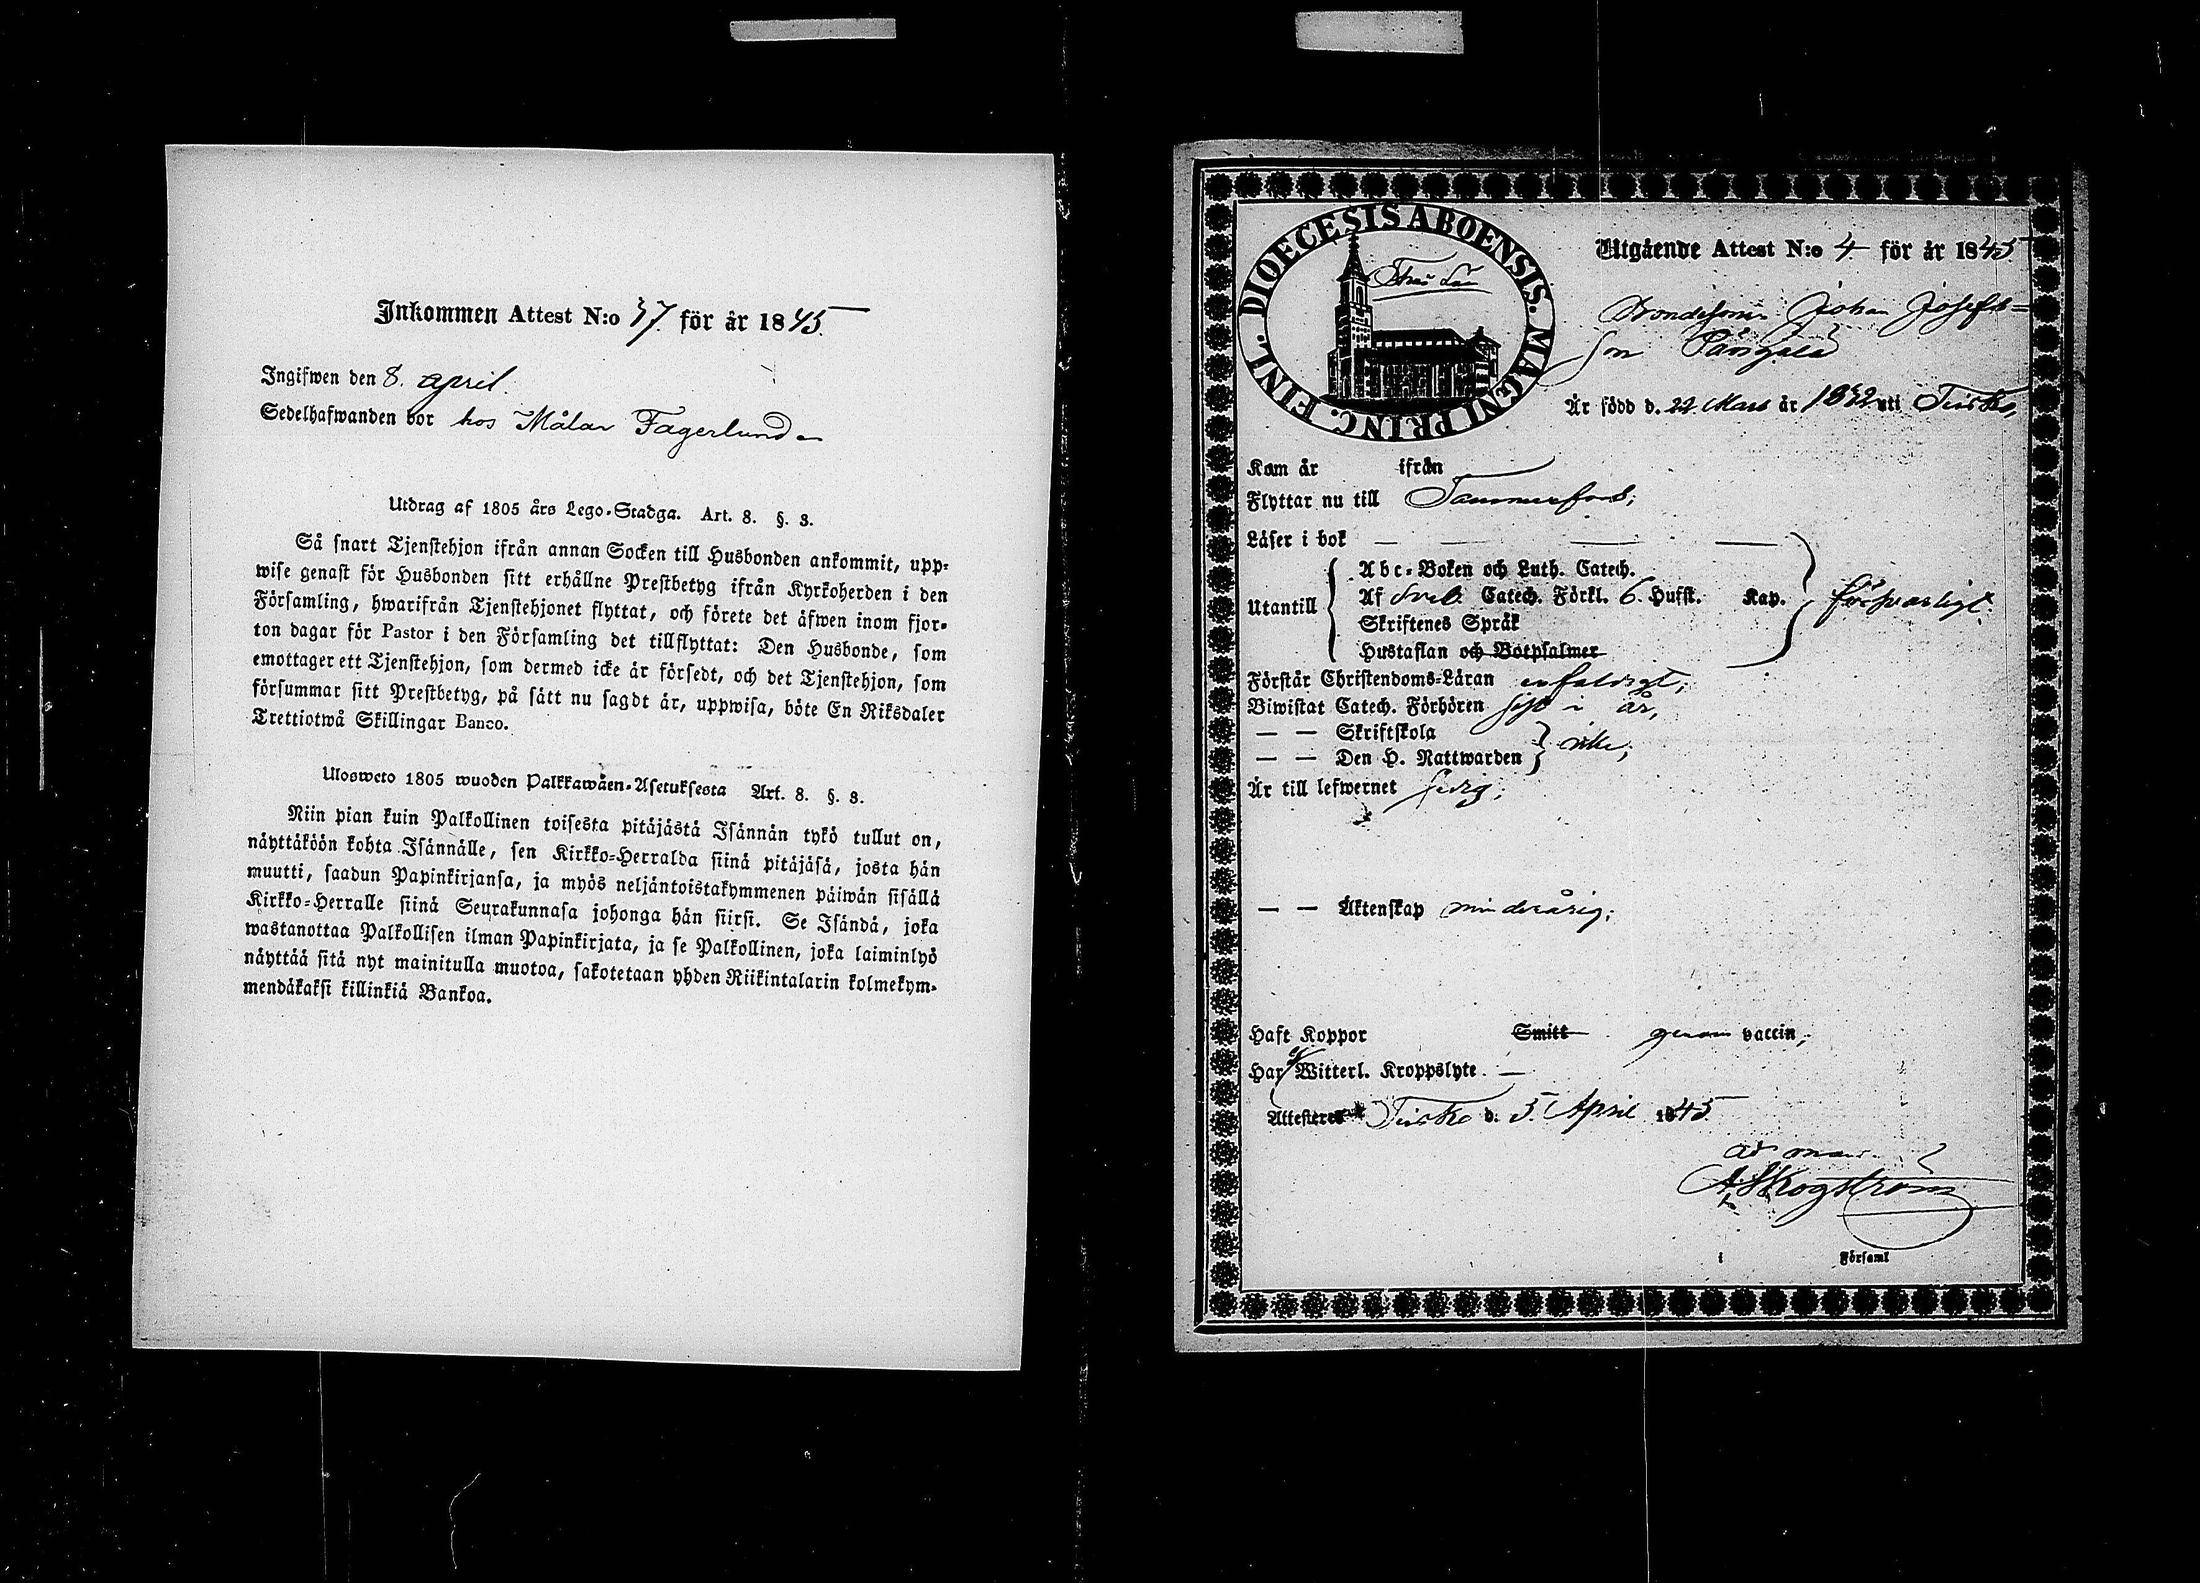 Inkommen Attest N:o 37. för år 1845.
Ingifwen den 8. april.
Sedelhafwanden bor hos Målar Fagerlund
Utdrag af 1805 års Lego-Stadga. Art. 8. §. 3.
Så snart Tjenstehjon ifrån annan Socken till Husbonden ankommit, upp-
wise genast för Husbonden sitt erhållne Prestbetyg ifrån Kyrkoherden i den
Församling, hwarifrån Tjenstehjonet flyttat, och förete det äfwen inom fjor-
ton dagar för Pastor i den Församling det tillflyttat: Den Husbonde, som
emottager ett Tjenstehjon, som dermed icke är försedt, och det Tjenstehjon, som
försummar sitt Prestbetyg, på sätt nu sagdt är, uppwisa, böte En Riksdaler
Trettiotwå Skillingar Banco.
Ulosweto 1805 wuoden Palkkawäen-Asetuksesta Art. 8. §. 3.
Niin pian kuin Palkollinen toisesta pitäjästä Isännän tykö tullut on,
näyttäköön kohta Isännälle, sen Kirkko-Herralda siinä pitäjäsä, josta hän
muutti, saadun Papinkirjansa, ja myös neljäntoistakymmenen päiwän sisällä
Kirkko-Herralle siinä Seurakunnasa johonga hän siirsi. Se Isändä, joka
wastanottaa Palkollisen ilman Papinkirjata, ja se Palkollinen, joka laiminlyö
näyttää sitä nyt mainitulla muotoa, sakotetaan yhden Riikintalarin kolmekym-
mendäkaksi killinkiä Bankoa.
DIOECESIS ABOENSIS. MAGNI PRINC. FINL.
Utgående Attest N:o 4 för år 1845
Bondesonen Johan Josefs-
son
Är född d. 22 Mars år 1832 uti
Kom år ifrån
Flyttar nu till Tammerfors;
Läser i bok — — — —
Abc-Boken och Luth. Catech.
Utantill Af Sveb. Catech. Förkl. 6. Hufst. Kap. försvarligt.
Skriftenes Språk
Hustaflan och Botpsalmer
Förstår Christendoms-Läran enfaldigt;
Biwistat Catech. Förhören sist i år,
— — Skriftskola
— — Den H. Nattwarden icke;
Är till lefwernet frejdig;
— — Äktenskap minderårig;
Haft Koppor Smitt genom vaccin;
Har ej Witterl. Kroppslyte. —
Attesteras d. 5. April 1845
ad man.
A. Skogström
i Församl